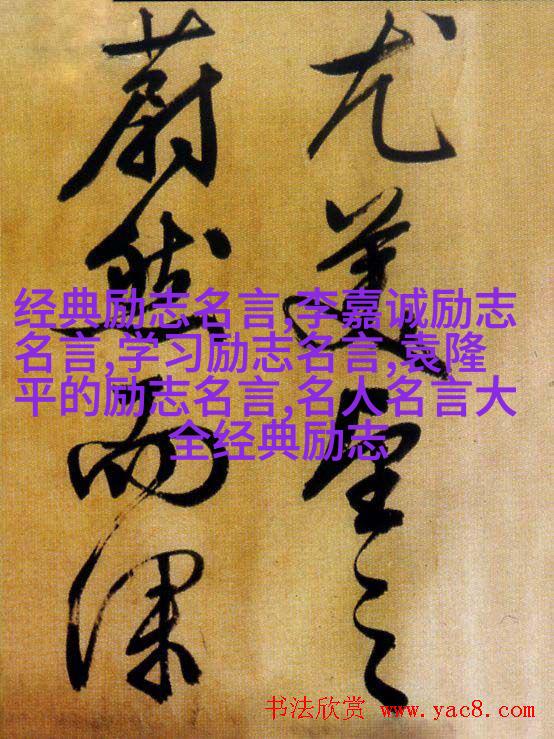 尤美望之
蔚然而深
经典励志名言,李嘉诚励志
名言,学习励志名言,袁隆
平的励志名言,名人名言大
全经典励志
书法欣赏 www.yac8.com